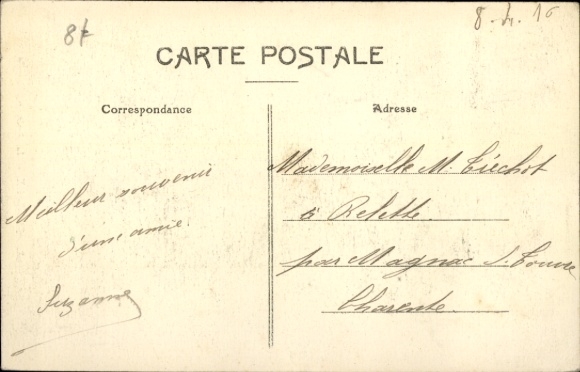 8f
8. 4. 16
CARTE POSTALE
Correspondance
Adresse
Meilleur souvenir
d'une amie.
Suzanne
Mademoiselle M. Téchot
à Relette.
par Magnac s. Touvre
Charente.